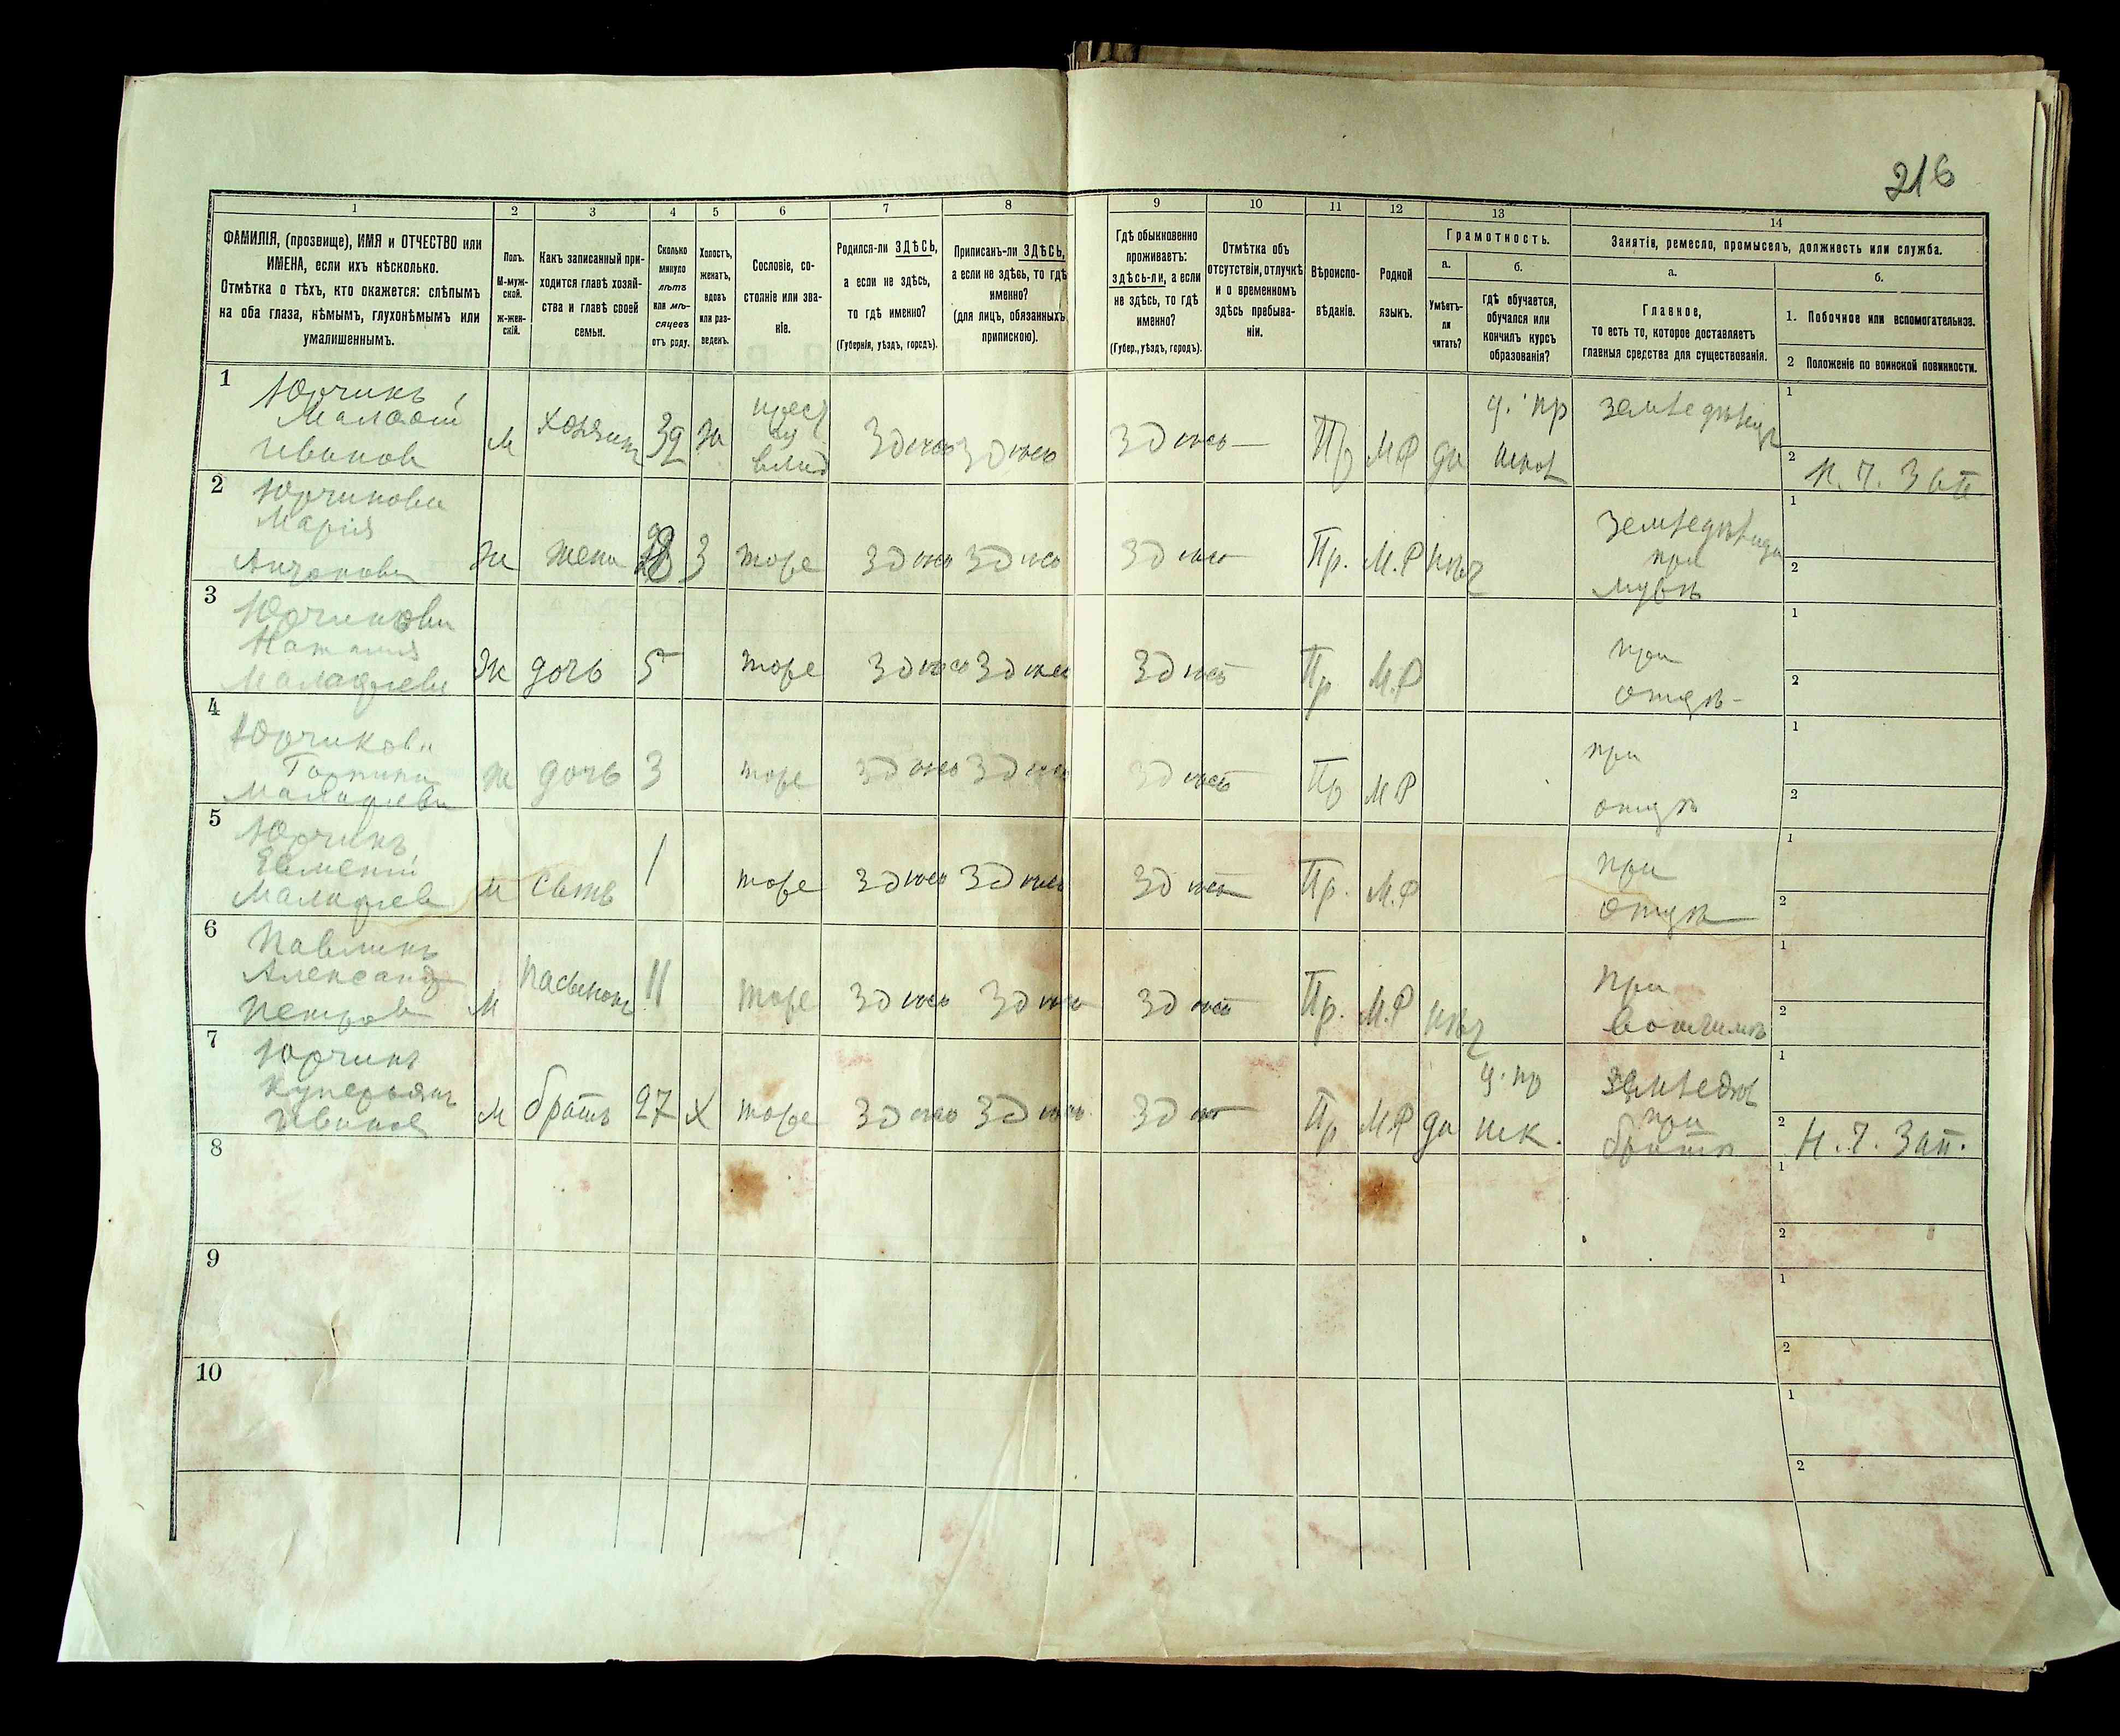 216
1
2
3
4
5
6
7
8
9
10
11
12
13
14
ФАМИЛІЯ, (прозвище), ИМЯ и ОТЧЕСТВО или
ИМЕНА, если ихъ нѣсколько.
Отмѣтка о тѣхъ, кто окажется: слѣпымъ
на оба глаза, нѣмымъ, глухонѣмымъ или
умалишеннымъ.
Полъ.
М-муж-
ской.
Ж-жен-
скій.
Какъ записанный при-
ходится главѣ хозяй-
ства и главѣ своей
семьи.
Сколько
минуло
лѣтъ
или мѣ-
сяцевъ
отъ роду.
Холостъ,
женатъ,
вдовъ
или раз-
веденъ.
Сословіе, со-
стояніе или зва-
ніе.
Родился-ли ЗДѢСЬ,
а если не здѣсь,
то гдѣ именно?
(Губернія, уѣздъ, городъ).
Приписанъ-ли ЗДѢСЬ,
а если не здѣсь, то гдѣ
именно?
(для лицъ, обязанныхъ
припискою).
Гдѣ обыкновенно
проживаетъ:
здѣсь-ли, а если
не здѣсь, то гдѣ
именно?
(Губер., уѣздъ, городъ).
Отмѣтка объ
отсутствіи, отлучкѣ
и о временномъ
здѣсь пребыва-
ніи.
Вѣроиспо-
вѣданіе.
Родной
языкъ.
Грамотность.
а.
Умѣетъ-
ли
читать?
б.
Гдѣ обучается,
обучался или
кончилъ курсъ
образованія?
Занятія, ремесло, промыселъ, должность или служба.
а.
Главное,
то есть то, которое доставляетъ
главныя средства для существованія.
б.
1. Побочное или вспомогательное.
2 Положеніе по воинской повинности.
1
Юрчикъ
Малафій
Иванов
М
хозяинъ
39
ж
крес
из
влад
Здѣсь
Здѣсь
Здѣсь
Пр
МР
да
ц. пр
школ
земледѣлец
1
2
Н. Ч. Зап.
2
Юрчикова
Марія
Антонова
Ж
жена
З
тоже
Здѣсь
Здѣсь
Здѣсь
Пр.
М.Р
нѣт
Земледѣлица
при
мужѣ
1
2
3
Юрчикова
Наталия
Малафіева
Ж
дочь
5
тоже
Здѣсь
Здѣсь
Здѣсь
Пр
М.Р
при
отцѣ
1
2
4
Юрчикова
Горпина
Малафіева
Ж
дочь
3
тоже
Здѣсь
Здѣсь
Здѣсь
Пр
МР
при
отцѣ
1
2
5
Юрчикъ
Евменій
Малафіев
М
сынъ
1
тоже
Здѣсь
Здѣсь
Здѣсь
Пр.
М.Р
при
отцѣ
1
2
6
Павликъ
Александ
Петров
М
пасынокъ
11
тоже
Здѣсь
Здѣсь
Здѣсь
Пр.
М.Р
нѣт
при
вотчимѣ
1
2
7
Юрчикъ
Куперьянъ
Иванов
М
братъ
27
Х
тоже
Здѣсь
Здѣсь
Здѣсь
Пр
МР
да
ц. пр
шк.
земледѣл
при
братѣ
1
2
Н. Ч. Зап.
8
1
2
9
1
2
10
1
2